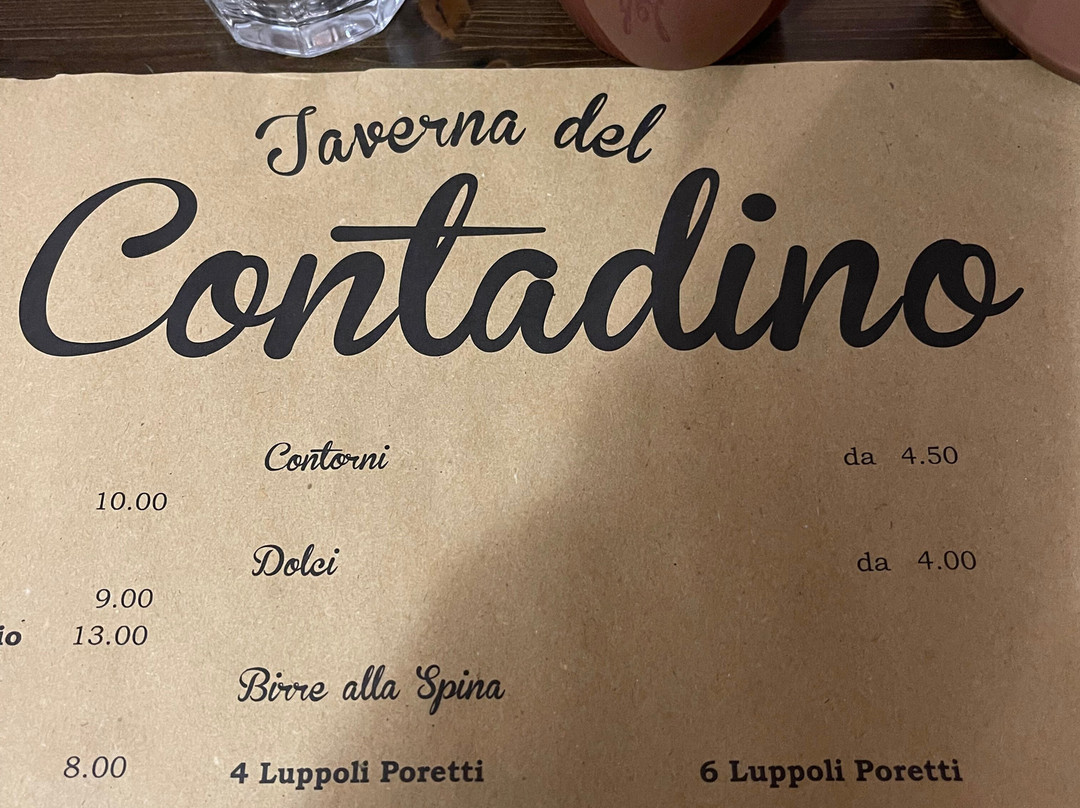 Taverna del
Contadino
Contorni da 4.50
10.00
Dolci da 4.00
9.00
io 13.00
Birre alla Spina
8.00 4 Luppoli Poretti 6 Luppoli Poretti